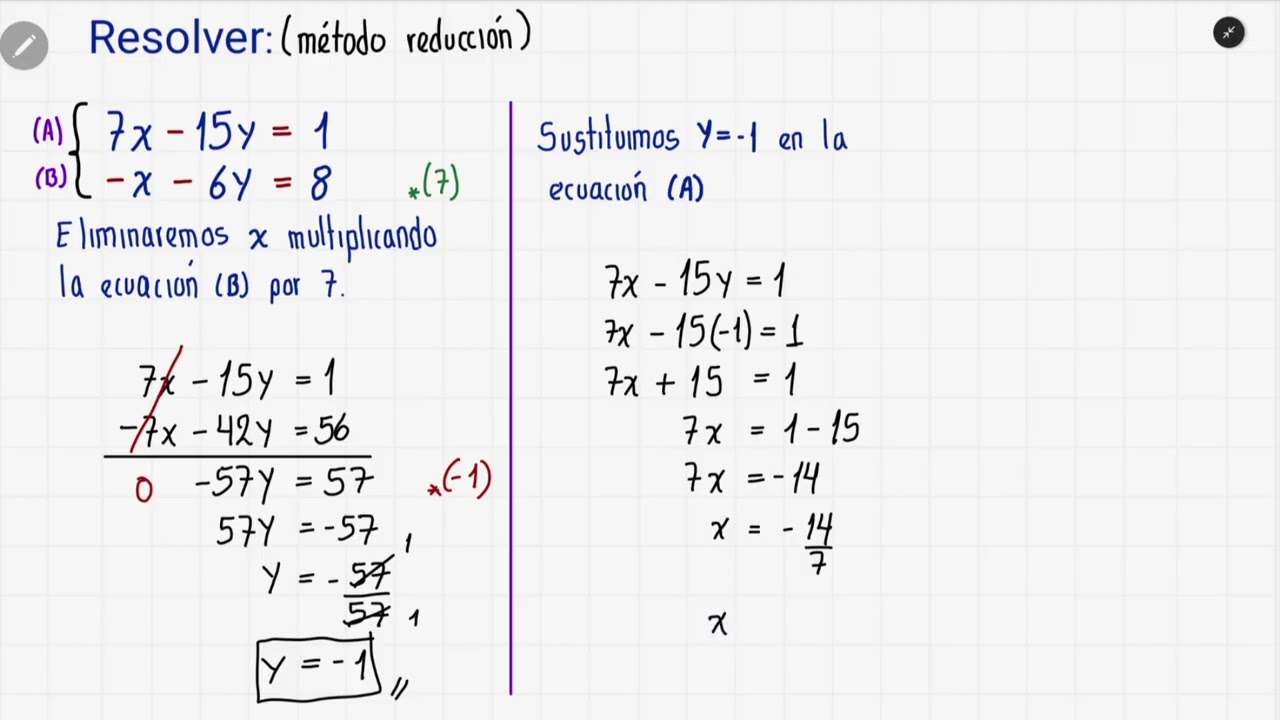 Resolver: (método reducción)
(A) 7x - 15y = 1
(B) -x - 6y = 8 *(7)
Eliminaremos x multiplicando
la ecuación (B) por 7.
7x - 15y = 1
-7x - 42y = 56
0 -57y = 57 *(-1)
57y = -57
1
y = - 57
57 1
y = -1 //
Sustituimos y = -1 en la
ecuación (A)
7x - 15y = 1
7x - 15(-1) = 1
7x + 15 = 1
7x = 1 - 15
7x = -14
x = - 14
7
x